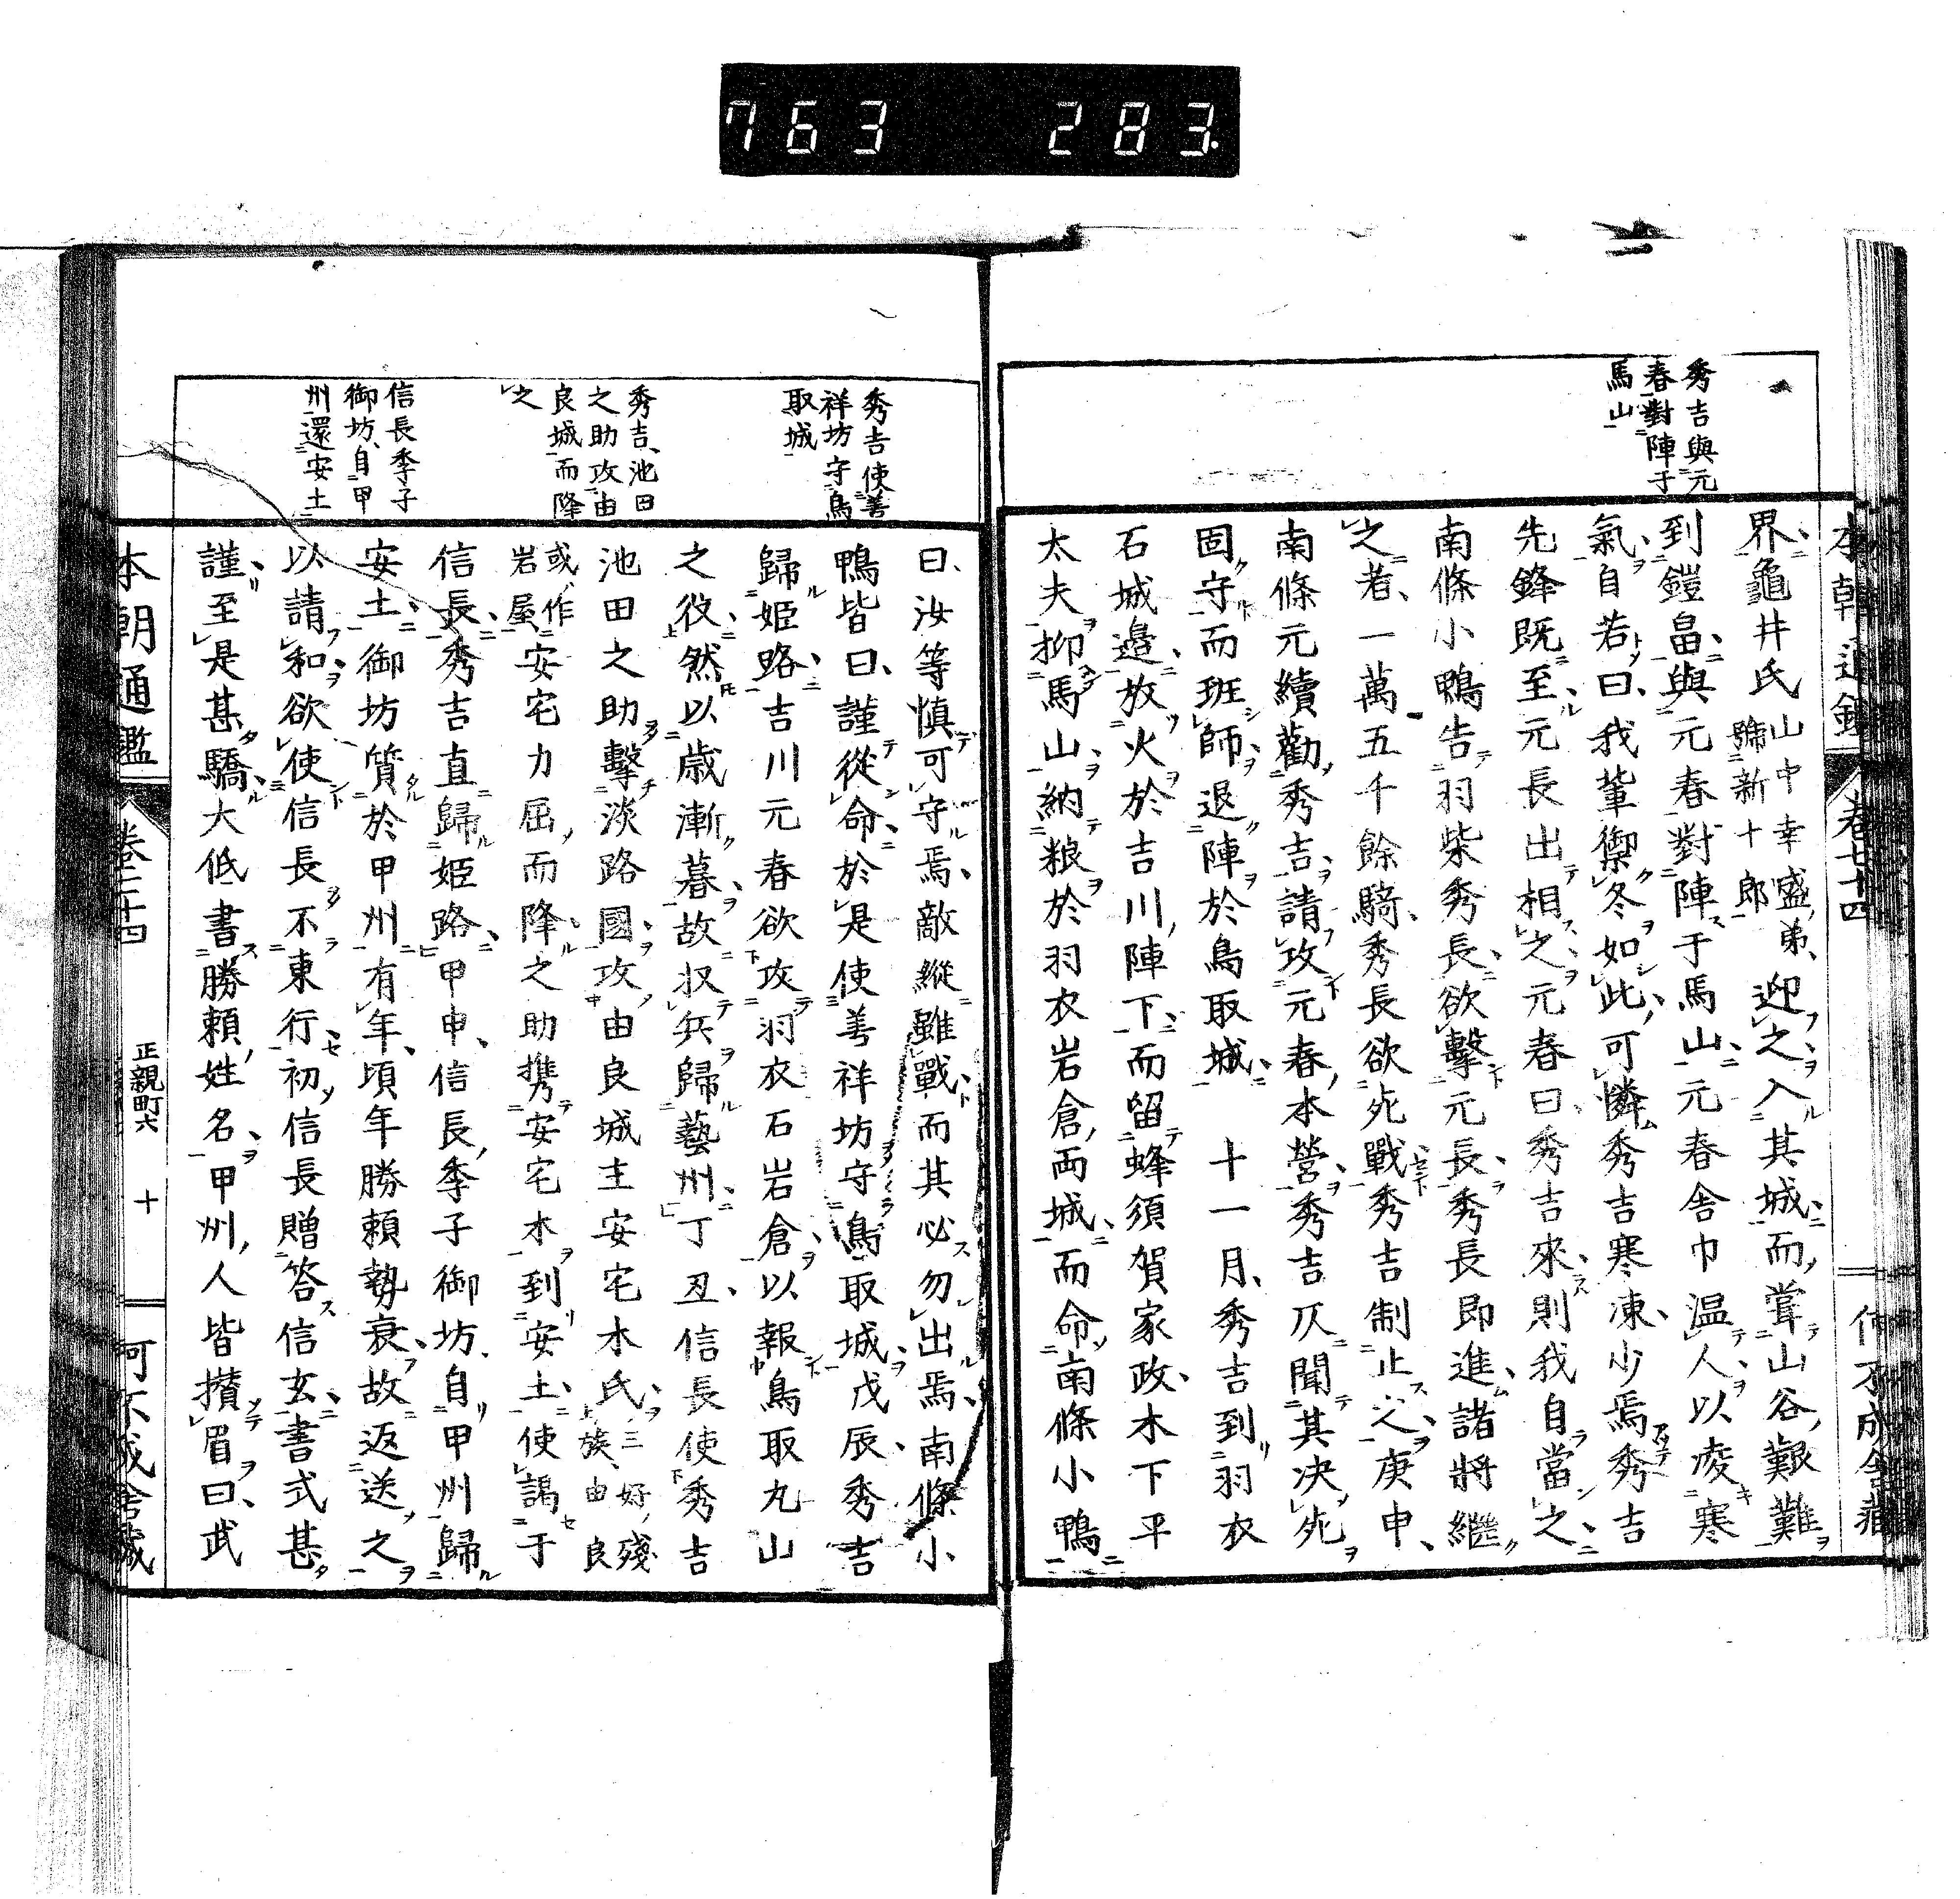 763 283.
秀吉與元
春對陣于
馬山
本朝通鑑 卷七十四 何不成舍藏
界龜井氏山中幸盛弟號新十郎迎之入其城而嘗山谷艱難
到鎧畠與元春對陣于馬山元春舍巾温人以凌寒
氣自若曰我輩禦冬如此可憐秀吉寒凍少焉秀吉
先鋒既至元長出相之元春曰秀吉來則我自當之
南條小鴨告羽柴秀長欲擊元長秀長即進諸將繼
之者一萬五千餘騎秀長欲死戰秀吉制止之庚申
南條元續勸秀吉請攻元春本營秀吉仄聞其决死
固守而班師退陣於鳥取城 十一月秀吉到羽衣
石城邉放火於吉川陣下而留蜂須賀家政木下平
太夫抑馬山納粮於羽衣岩倉兩城而命南條小鴨
秀吉使善
祥坊守鳥
取城
秀吉池田
之助攻由
良城而降
之
信長季子
御坊自甲
州還安土
曰汝等慎可守焉敵縱雖戰而其必勿出焉南條小
鴨皆曰謹從命於是使善祥坊守鳥取城戊辰秀吉
歸姫路吉川元春欲攻羽衣石岩倉以報鳥取丸山
之役然以歳漸暮故収兵歸藝州丁丑信長使秀吉
池田之助擊淡路國攻由良城主安宅木氏三好殘族由良
或作岩屋安宅力屈而降之助携安宅木到安土使謁于
信長秀吉直歸姫路甲申信長季子御坊自甲州歸
安土御坊質於甲州有年頃年勝賴勢衰故返送之
以請和欲使信長不東行初信長贈答信玄書式甚
謹至是甚驕大低書勝頼姓名甲州人皆攅眉曰武
本朝通鑑 卷七十四 正親町六 十 何不成舍藏